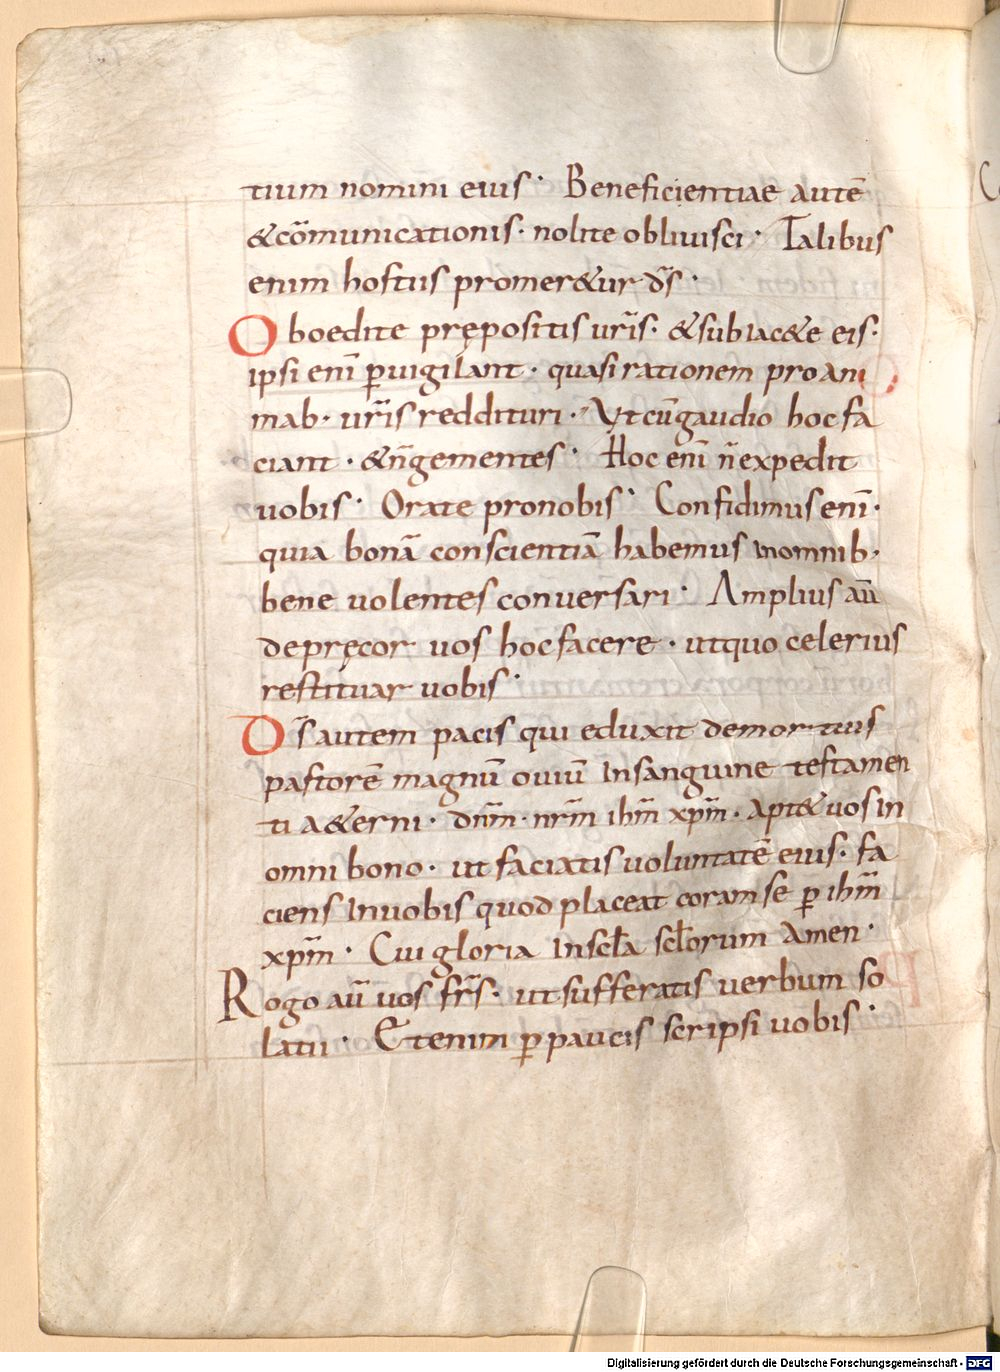 tium nomini eius· Beneficientiae autē
&cōmunicationis· nolite obliuisci· Talibus
enim hostiis promer&ur d̄s·
Oboedite prępositis ur̄is· &subiac&e eis·
ipsi enī ꝑuigilant· quasi rationem pro ani
mab· ur̄is reddituri· Vt cū gaudio hoc fa
ciant· &n̄ gementes· Hoc enī n̄ expedit
uobis· Orate pro nobis· Confidimus enī·
quia bonā conscientiā habemus in omnib·
bene uolentes conuersari· Amplius aū
depręcor uos hoc facere· ut quo celerius
restituar uobis·
D̄s autem pacis qui eduxit de mortuis
pastorē magnū ouiū In sanguine testamen
ti a&erni· dn̄m· nr̄m ih̄m xp̄m· Apt& uos in
omni bono· ut faciatis uoluntatē eius· fa
ciens In uobis quod placeat coram se ꝑ ih̄m
xp̄m· Cui gloria In scl̄a scl̄orum Amen·
Rogo aū uos fr̄s· ut sufferatis uerbum so
latii· Etenim ꝑpaucis scripsi uobis·
Digitalisierung gefördert durch die Deutsche Forschungsgemeinschaft - DFG